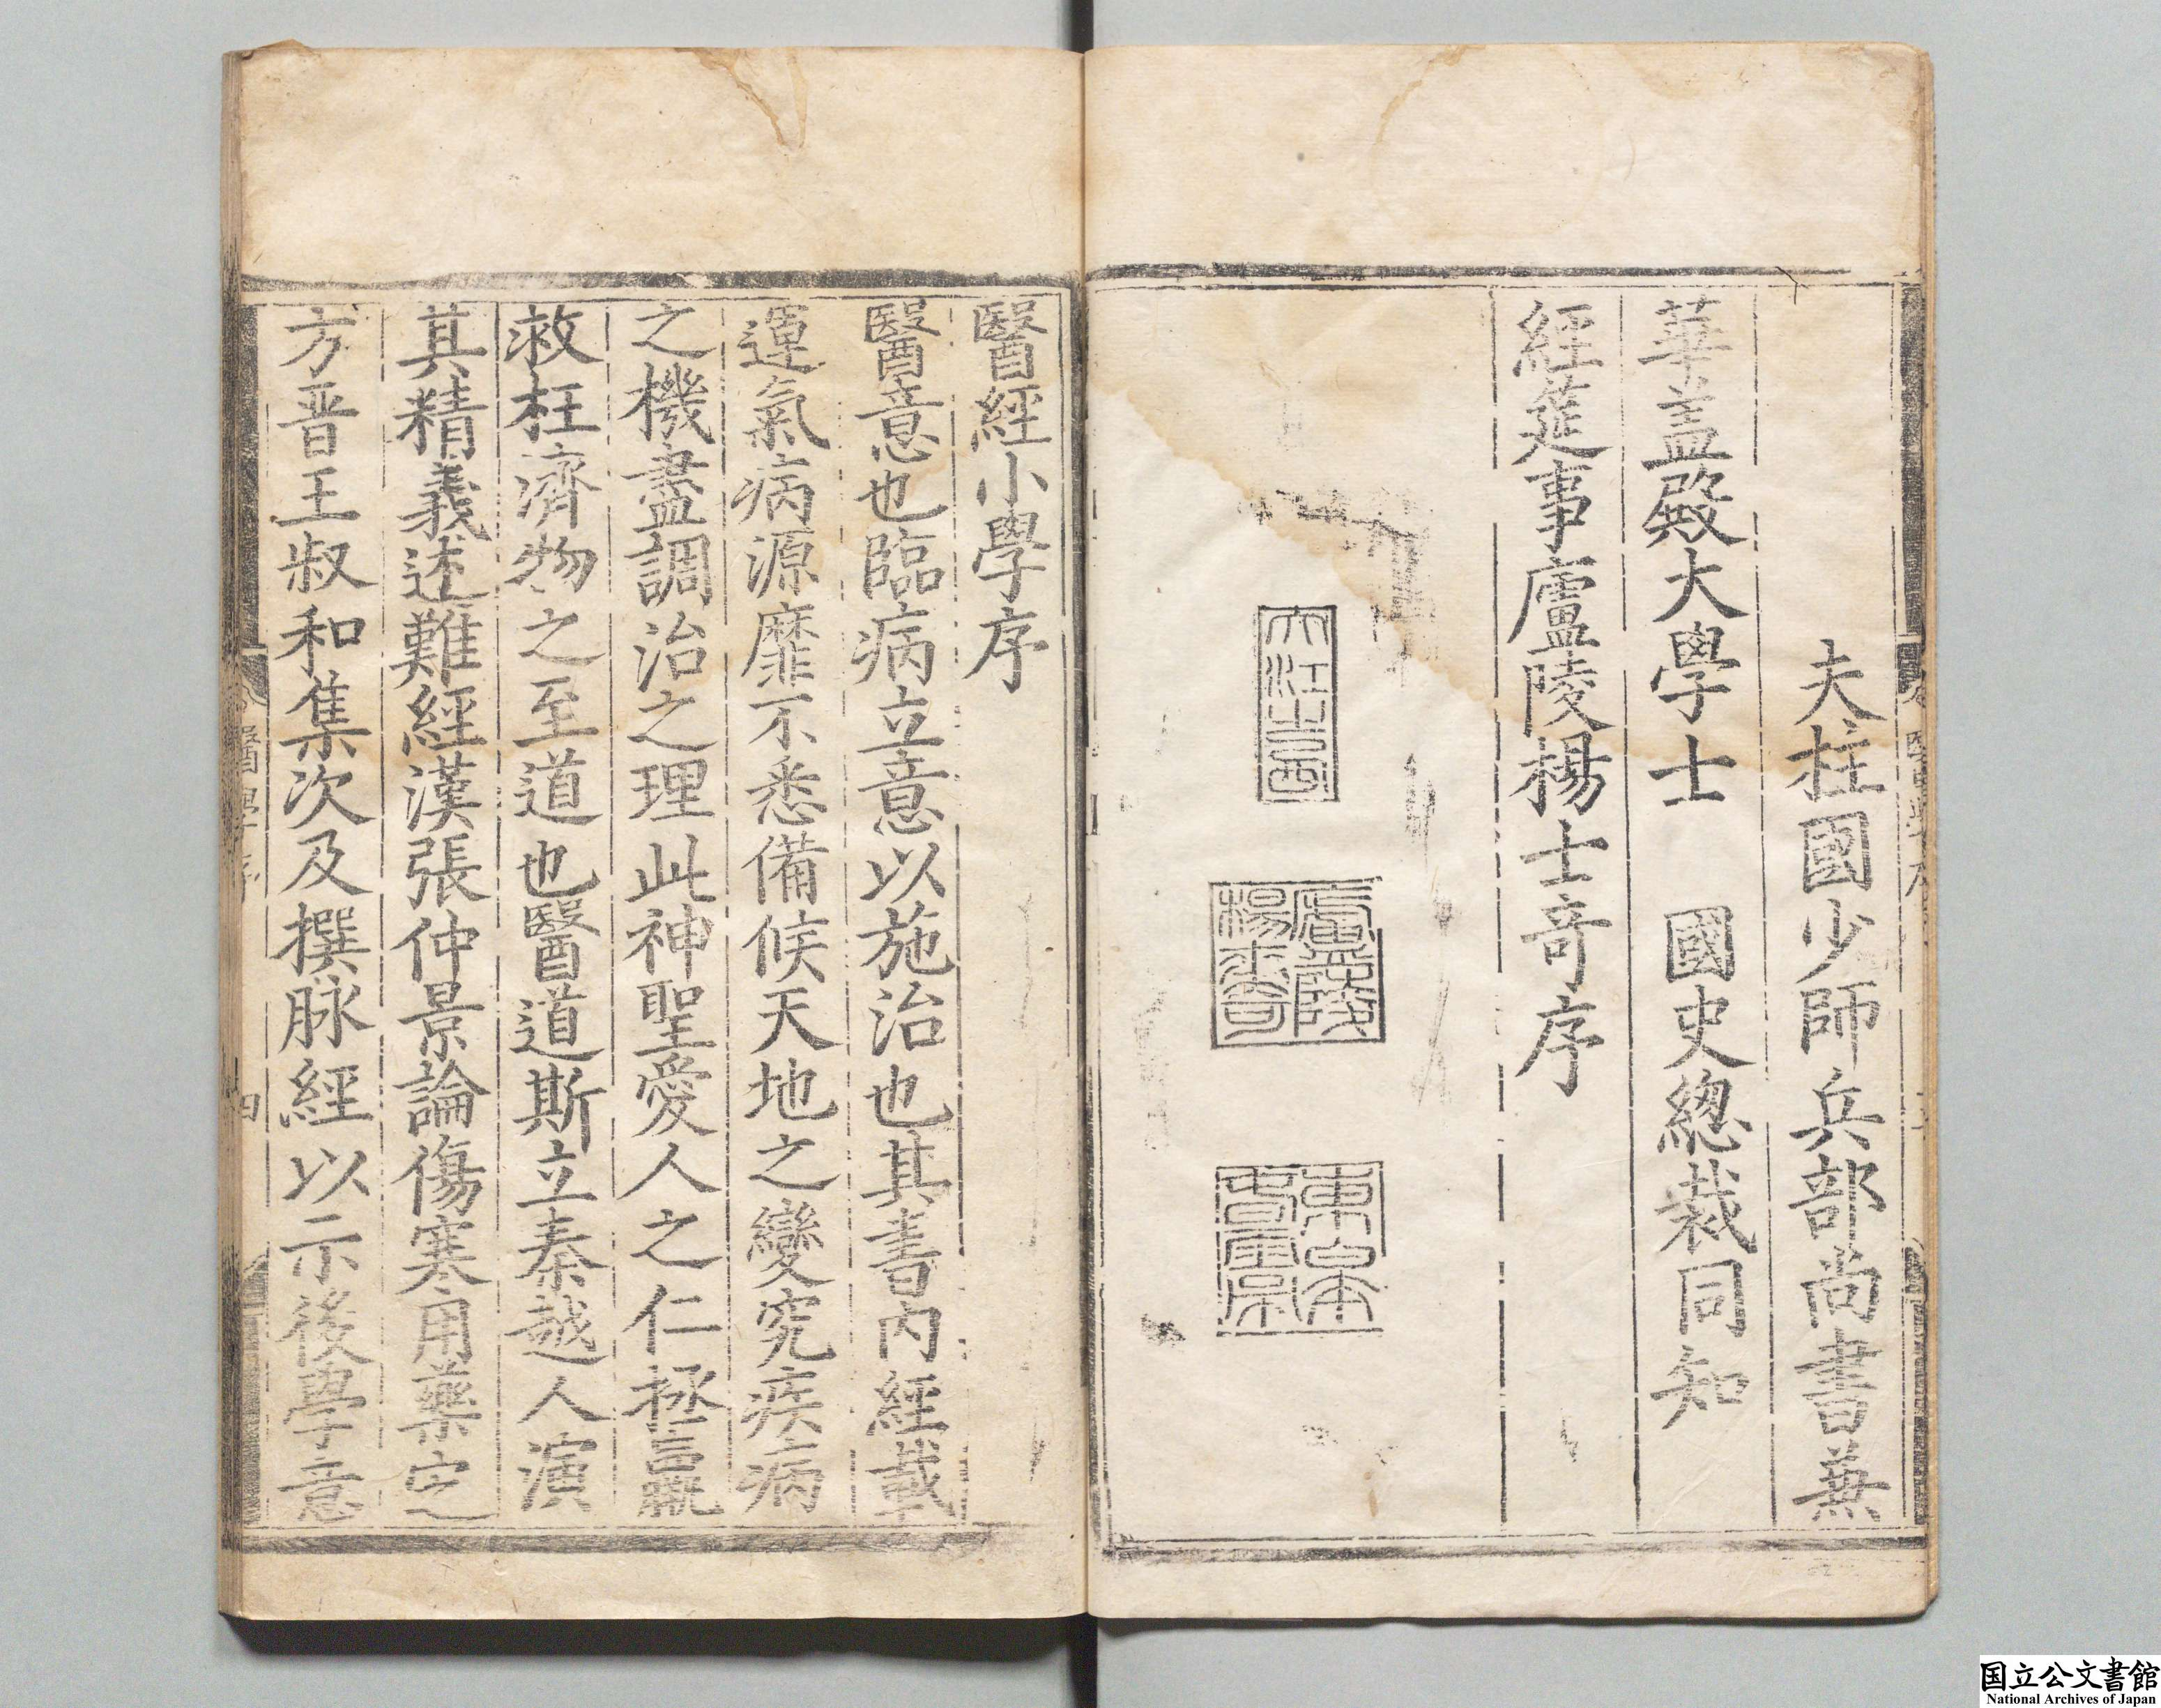 夫柱國少師兵部尚書兼
華盖殿大學士　國史總裁同知
經筵事廬陵楊士奇序
大江山西
廬陵
楊士奇
醫經小學序
醫意也臨病立意以施治也其書內經載
運氣病源靡不悉備候天地之變究疾病
之機盡調治之理此神聖愛人之仁拯羸
救枉濟物之至道也醫道斯立秦越人演
其精義述難經漢張仲景論傷寒用藥定
方晋王叔和集次及撰脉經以示後學意
四
国立公文書館
National Archives of Japan